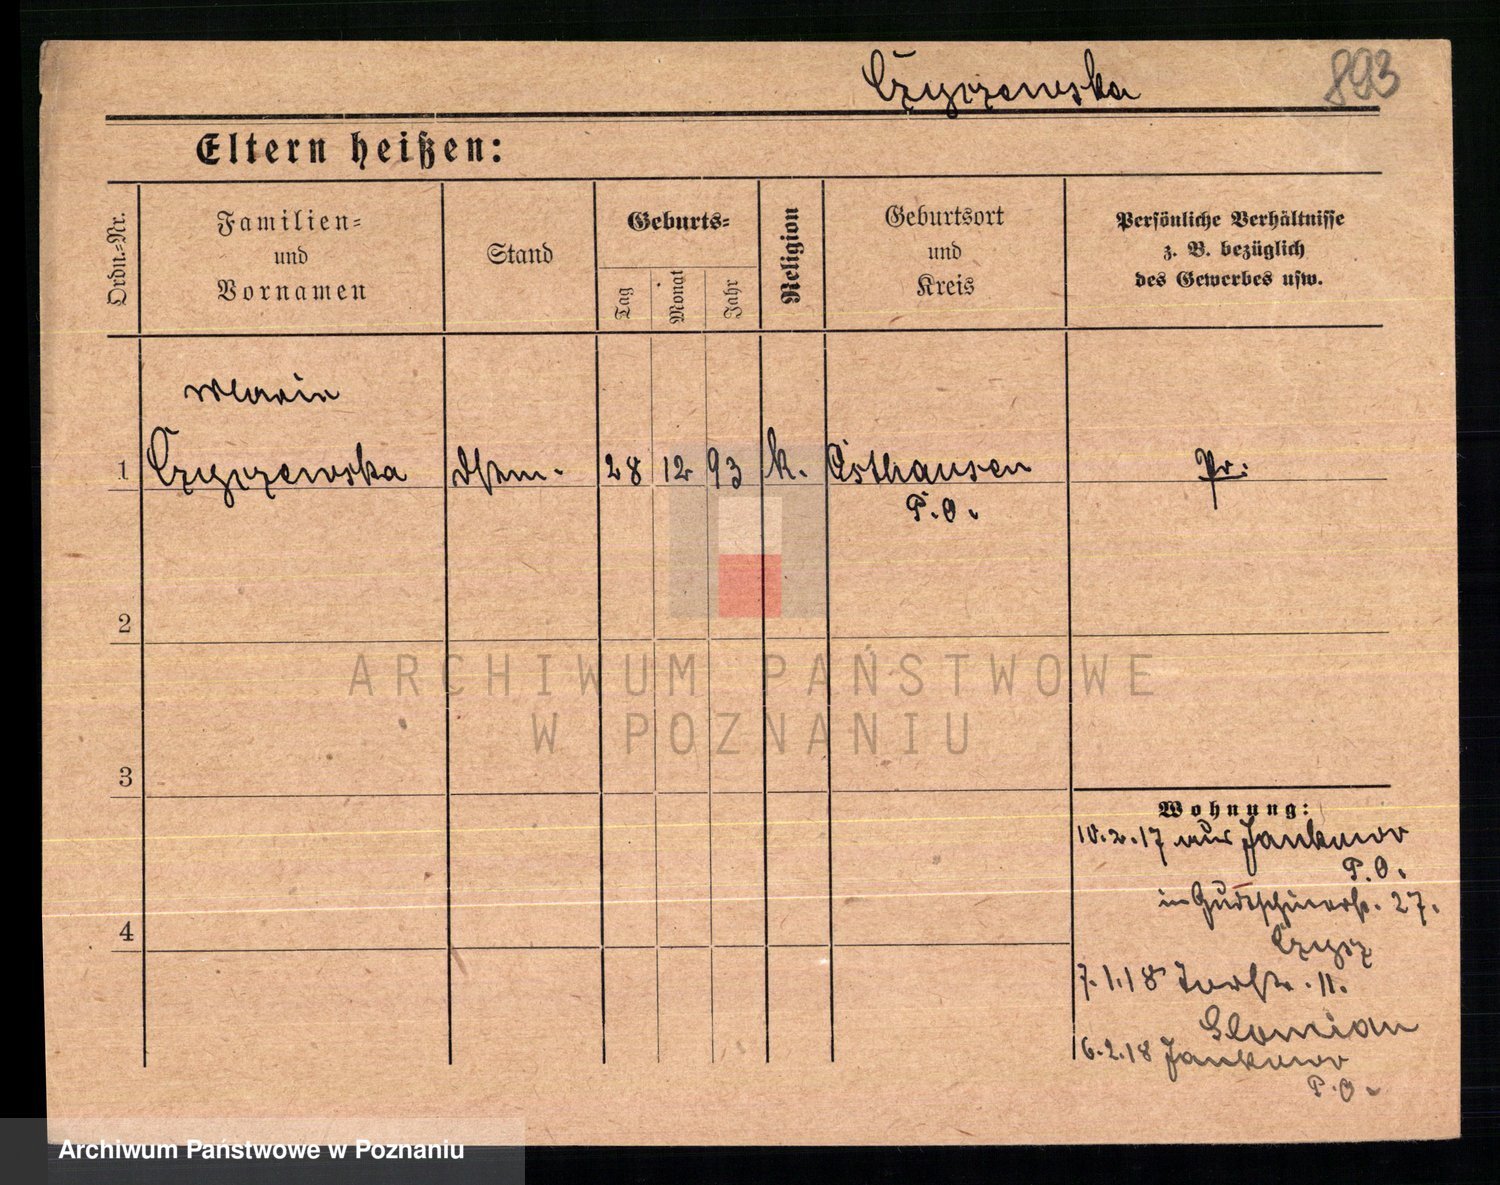 Czyrzewska 893
Eltern heißen:
Ordn.-Nr.
Familien-
und
Vornamen
Stand
Geburts-
Tag
Monat
Jahr
Religion
Geburtsort
und
Kreis
Persönliche Verhältnisse
z. B. bezüglich
des Gewerbes usw.
Maria
1 Czyrzewska 28 12 93 k. Osthausen Pr.
P. O.
2
3
4
Wohnung:
10.2.17 aus Jankowo
P. O.
in 27.
7.1.18 11.
6.2.18 Jankowo
P. O.
ARCHIWUM PAŃSTWOWE
W POZNANIU
Archiwum Państwowe w Poznaniu